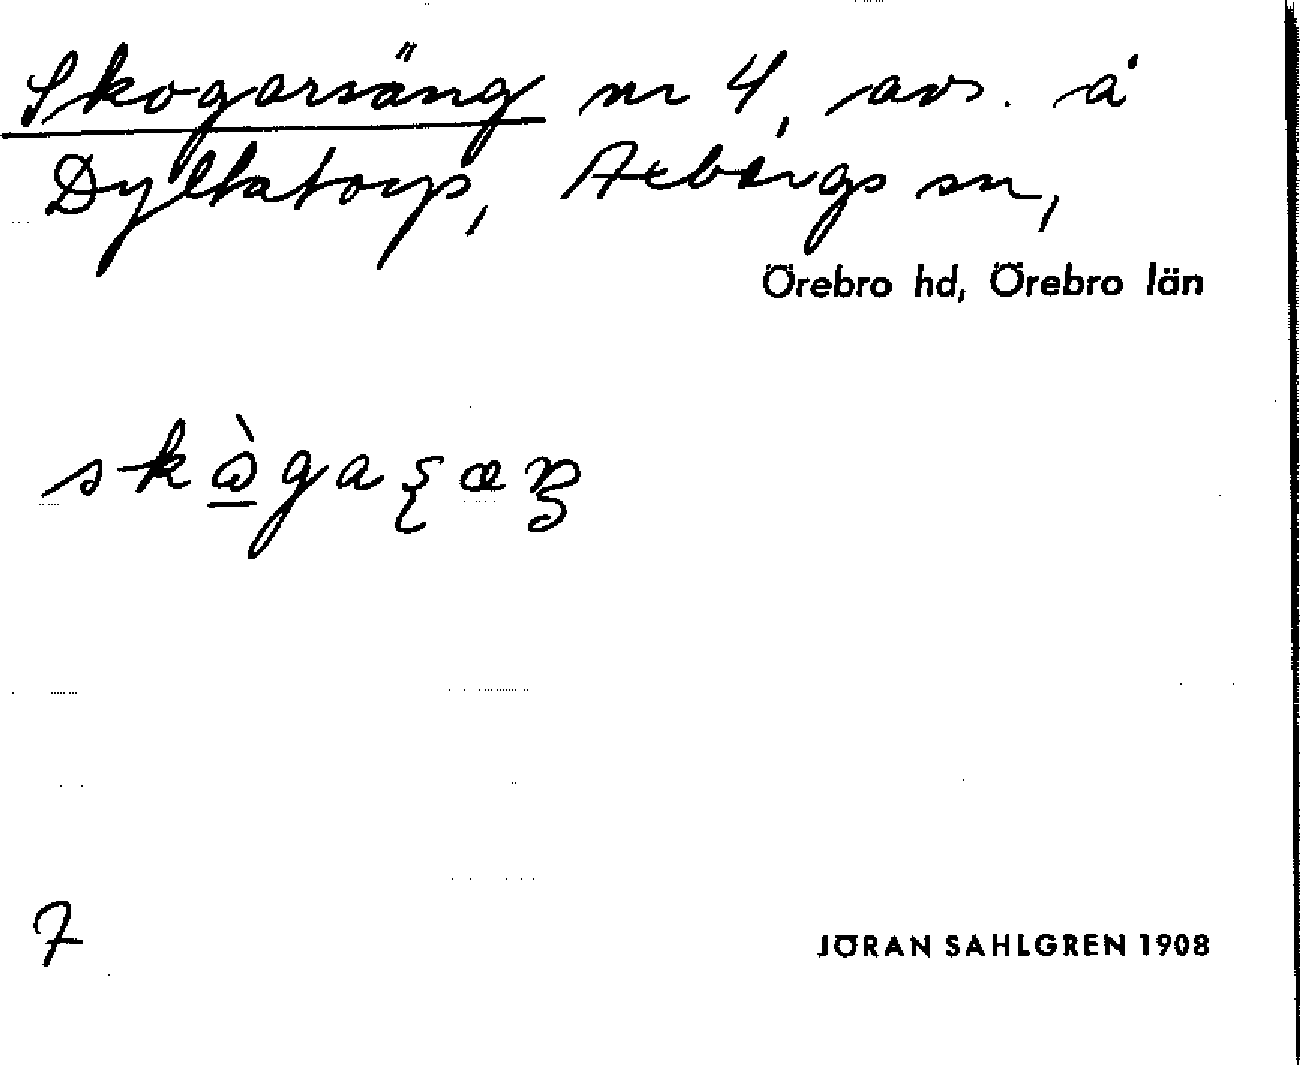 Skogarsäng nr 4, avs. å
Dyltatorp, Axbergs sn,
Örebro hd, Örebro län
skɷ̠̀gaʂæŋ
7
JÖRAN SAHLGREN 1908